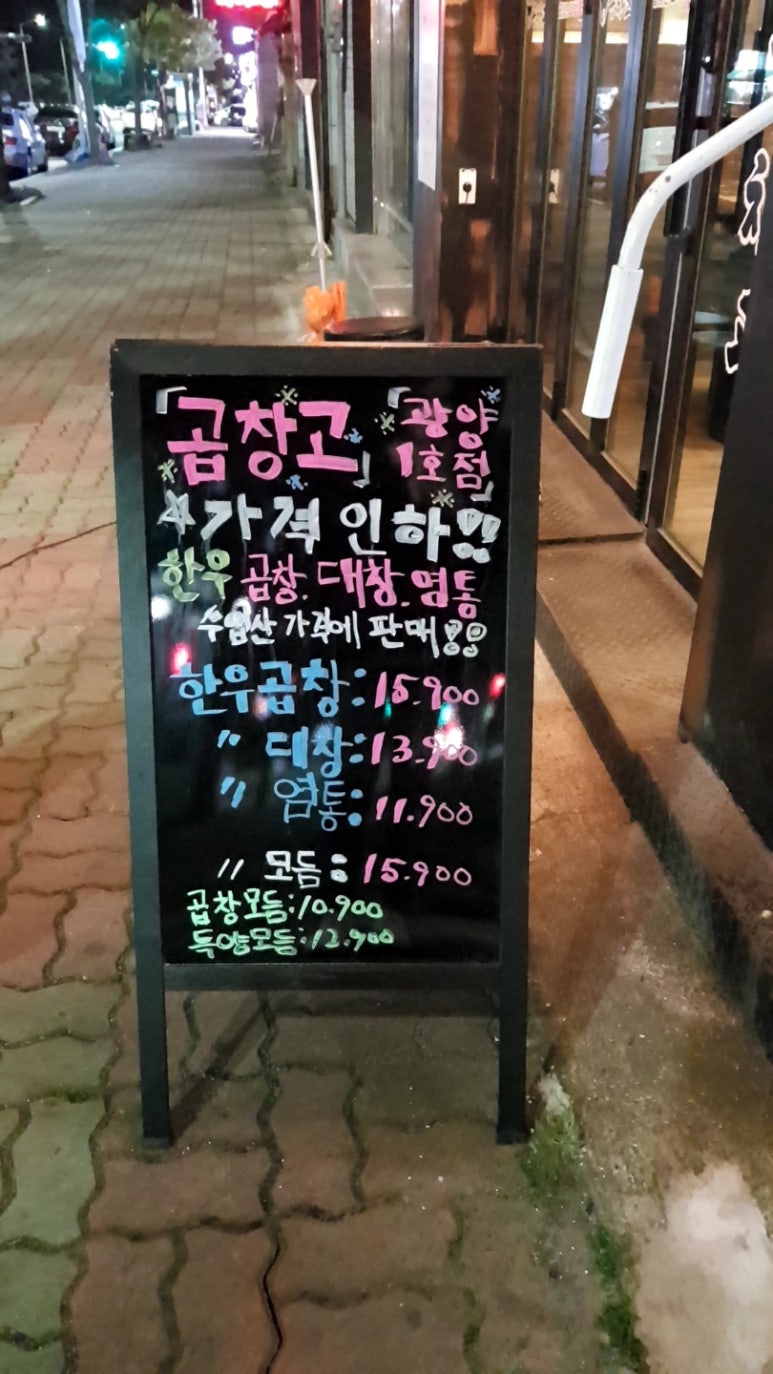 「곱창고」
「광양
1호점」
☆가격 인하!!
한우 곱창.대창.염통
수입산 가격에 판매!!
한우곱창:15.900
〃 대창:13.900
〃 염통:11.900
〃 모듬:15.900
곱창모듬:10.900
특양모듬:12.900